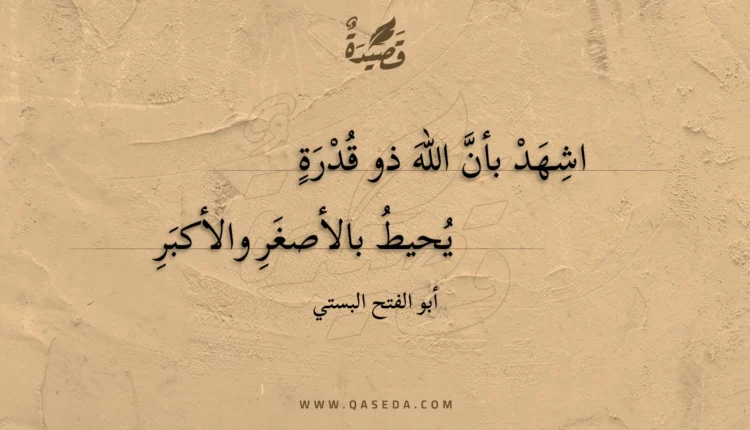 قَصِيْدَةٌ
اشِهَدْ بأنَّ اللهَ ذو قُدْرَةٍ
يُحيطُ بالأصغَرِ والأكبَرِ
أبو الفتح البستي
WWW.QASEDA.COM